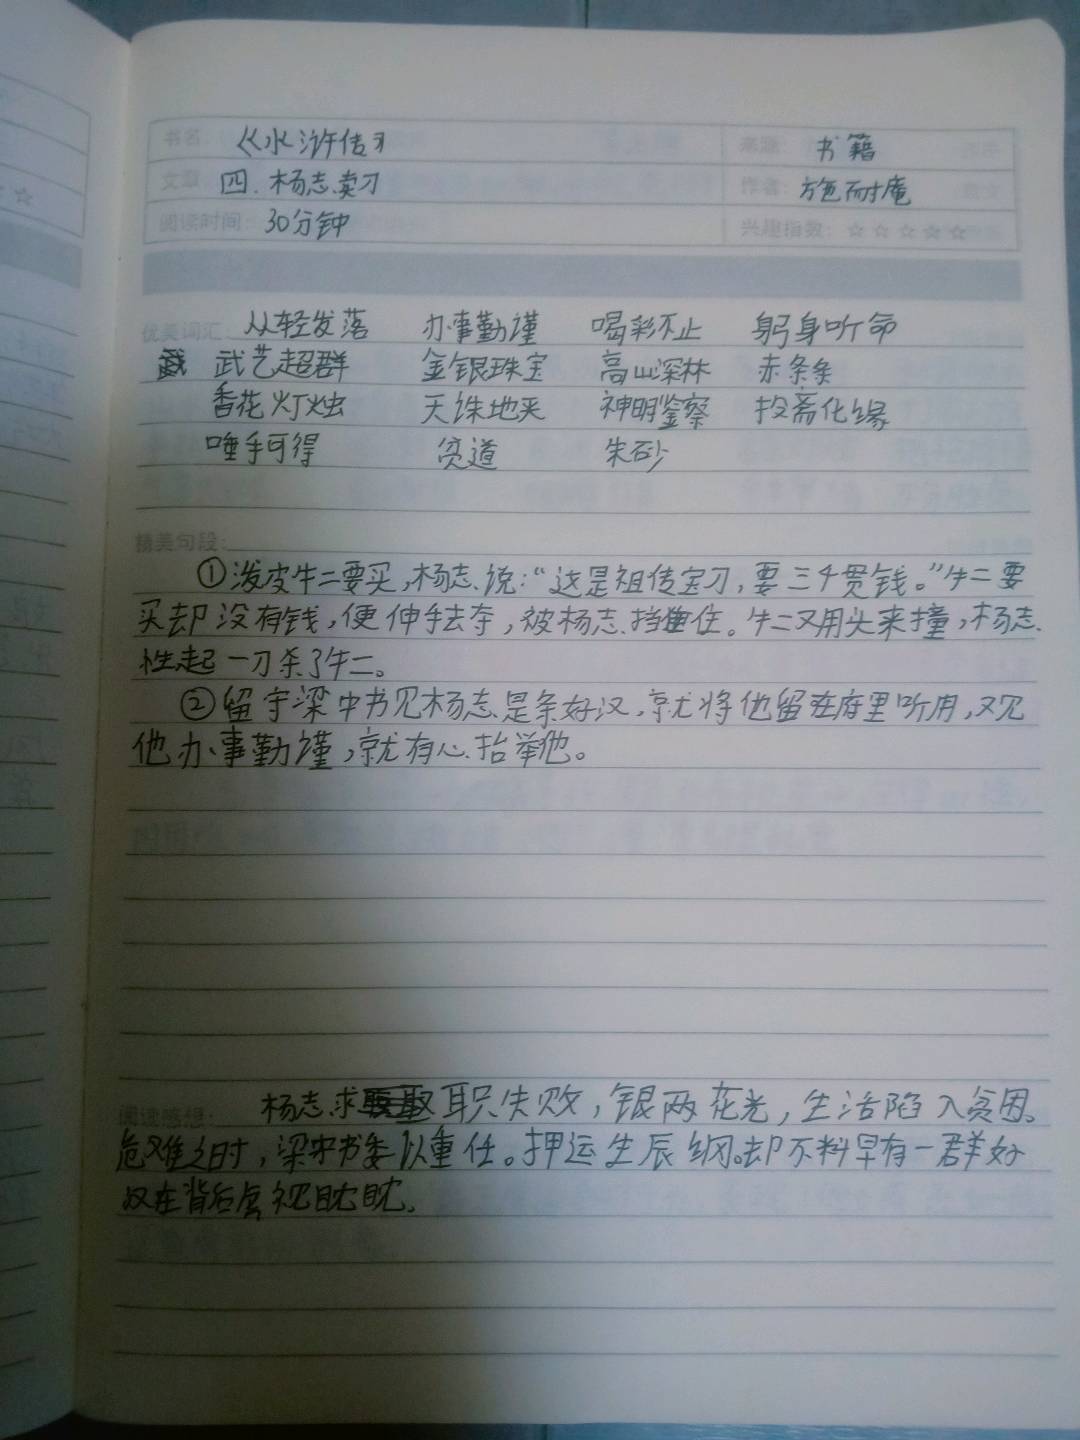 书名：《水浒传》 来源：书籍
文章 四.杨志卖刀 作者：施耐庵
阅读时间：30分钟 兴趣指数：☆☆☆☆☆
优美词汇：从轻发落 办事勤谨 喝彩不止 躬身听命
武艺超群 金银珠宝 高山深林 赤条条
香花灯烛 天诛地灭 神明鉴察 投斋化缘
唾手可得 贫道 朱砂
精美句段：
①泼皮牛二要买，杨志说：“这是祖传宝刀，要三千贯钱。”牛二要
买却没有钱，便伸手去夺，被杨志挡住。牛二又用头来撞，杨志
性起一刀杀了牛二。
②留守梁中书见杨志是条好汉，就将他留在府里听用，又见
他办事勤谨，就有心抬举他。
阅读感想：杨志求职失败，银两花光，生活陷入贫困。
危难之时，梁中书委以重任。押运生辰纲。却不料早有一群好
汉在背后虎视眈眈。